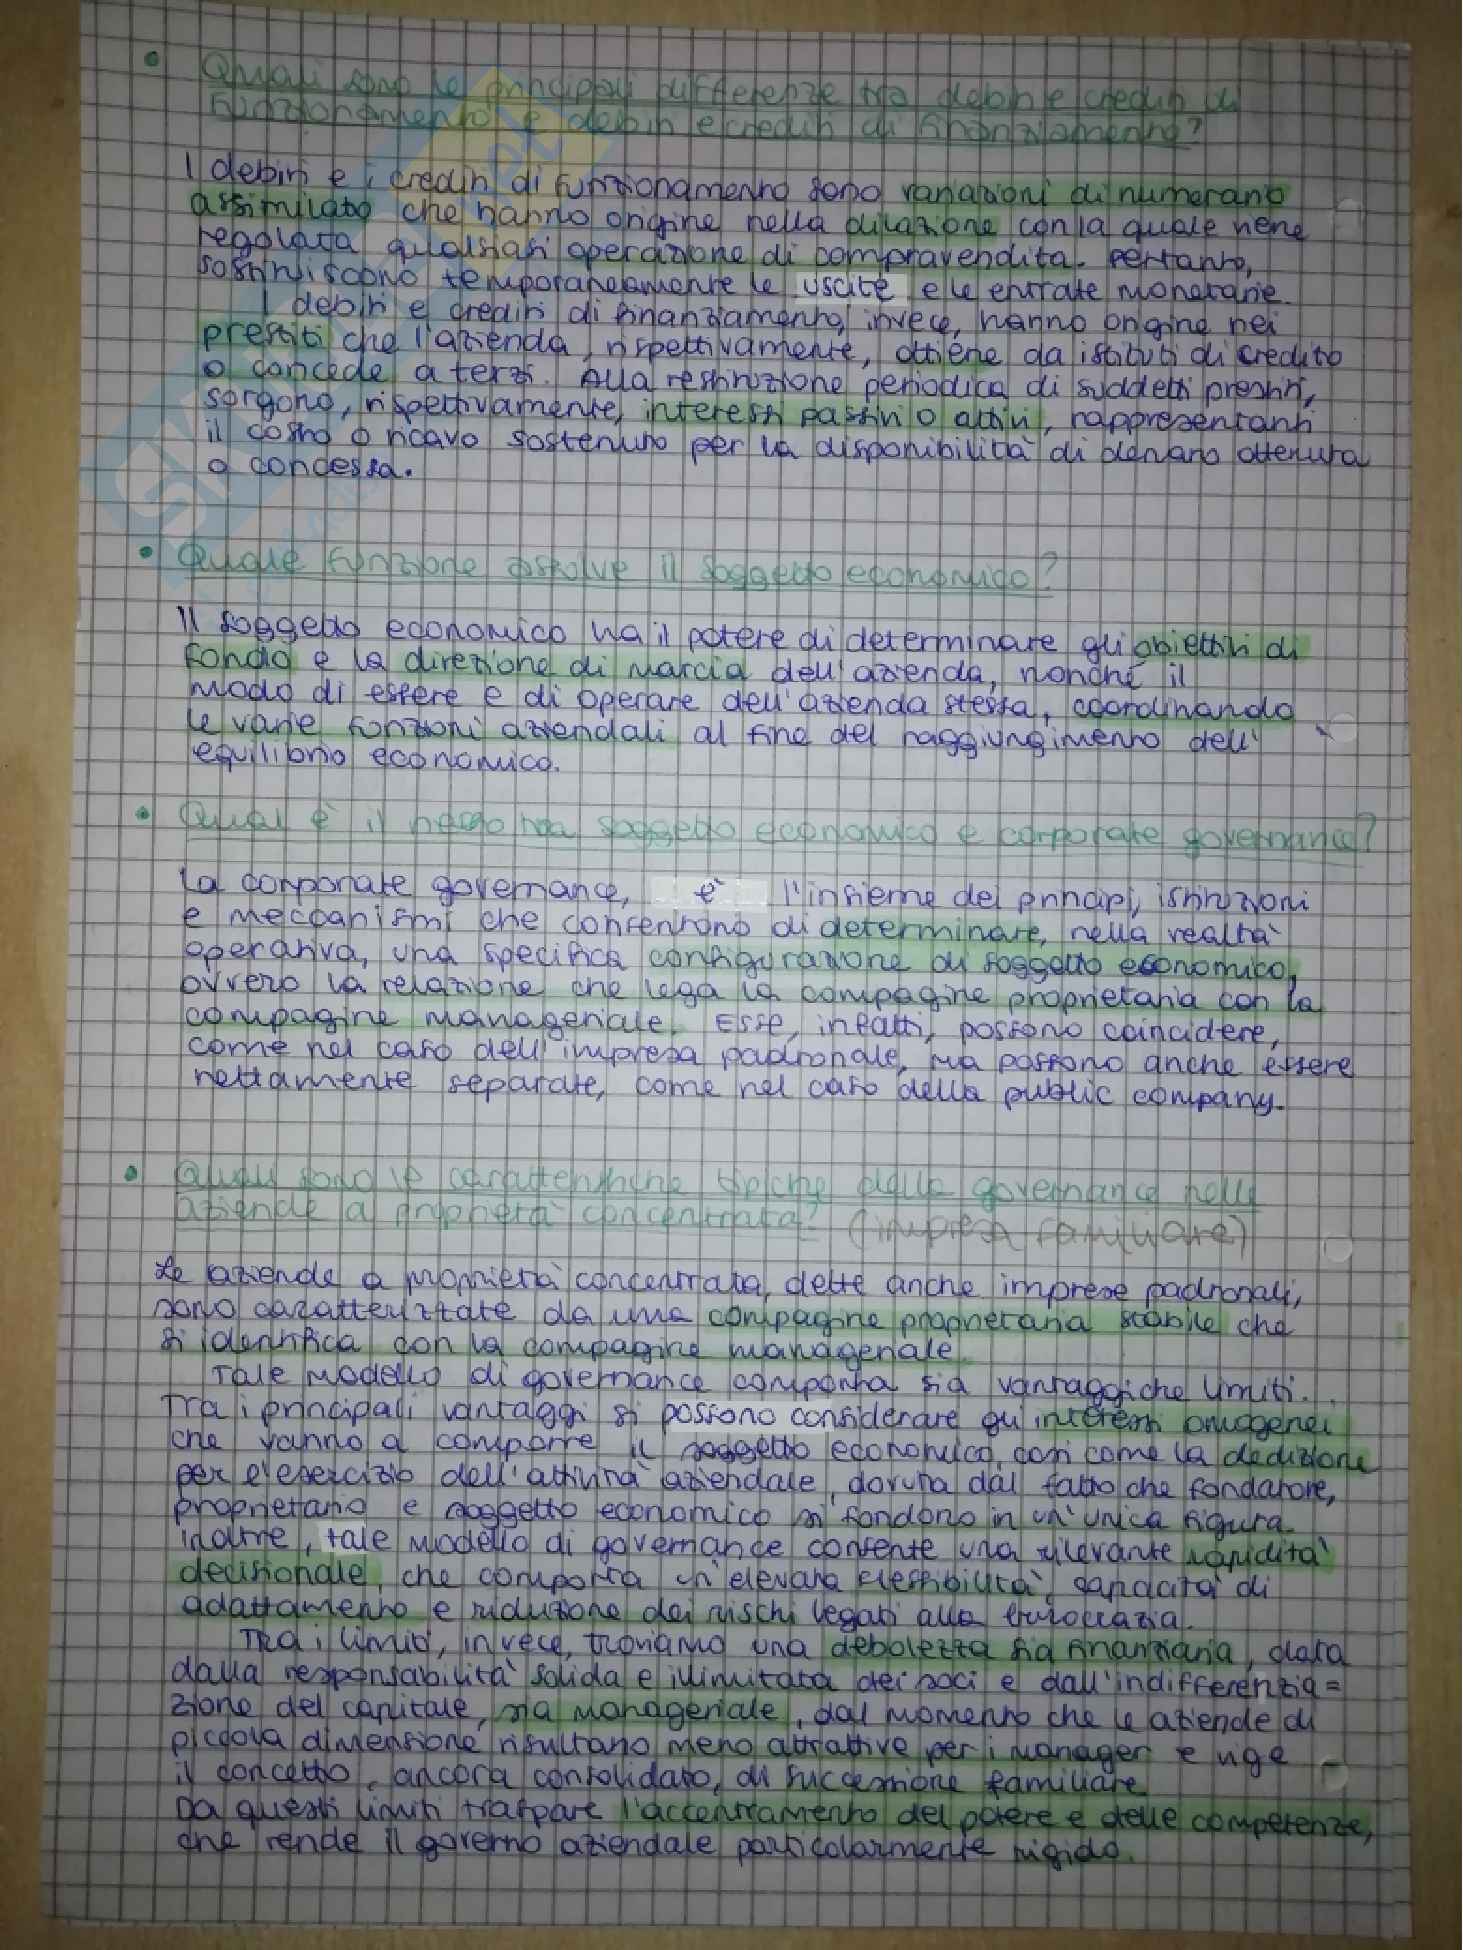 • Quali sono le principali differenze tra debiti e crediti di
funzionamento e debiti e crediti di finanziamento?
I debiti e i crediti di funzionamento sono variazioni di numerario
assimilato che hanno origine nella dilazione con la quale viene
regolata qualsiasi operazione di compravendita. Pertanto,
sostituiscono temporaneamente le uscite e le entrate monetarie.
I debiti e crediti di finanziamento, invece, hanno origine nei
prestiti che l'azienda, rispettivamente, ottiene da istituti di credito
o concede a terzi. Alla restituzione periodica di suddetti prestiti,
sorgono, rispettivamente, interessi passivi o attivi, rappresentanti
il costo o ricavo sostenuto per la disponibilità di denaro ottenuta
o concessa.
• Quale funzione assolve il soggetto economico?
Il soggetto economico ha il potere di determinare gli obiettivi di
fondo e la direzione di marcia dell'azienda, nonché il
modo di essere e di operare dell'azienda stessa, coordinando
le varie funzioni aziendali al fine del raggiungimento dell'
equilibrio economico.
• Qual è il nesso tra soggetto economico e corporate governance?
La corporate governance, è l'insieme dei principi, istituzioni
e meccanismi che consentono di determinare, nella realtà
operativa, una specifica configurazione di soggetto economico,
ovvero la relazione che lega la compagine proprietaria con la
compagine manageriale. Esse, infatti, possono coincidere,
come nel caso dell'impresa padronale, ma possono anche essere
nettamente separate, come nel caso della public company.
• Quali sono le caratteristiche tipiche della governance nelle
aziende a proprietà concentrata? (impresa familiare)
Le aziende a proprietà concentrata, dette anche imprese padronali,
sono caratterizzate da una compagine proprietaria stabile che
si identifica con la compagine manageriale.
Tale modello di governance comporta sia vantaggi che limiti.
Tra i principali vantaggi si possono considerare gli interessi omogenei
che vanno a comporre il soggetto economico, così come la dedizione
per l'esercizio dell'attività aziendale, dovuta dal fatto che fondatore,
proprietario e soggetto economico si fondono in un'unica figura.
Inoltre, tale modello di governance consente una rilevante rapidità
decisionale, che comporta un'elevata flessibilità, capacità di
adattamento e riduzione dei rischi legati alla burocrazia.
Tra i limiti, invece, troviamo una debolezza sia finanziaria, data
dalla responsabilità solida e illimitata dei soci e dall'indifferenzia=
zione del capitale, sia manageriale, dal momento che le aziende di
piccola dimensione risultano meno attrattive per i manager e vige
il concetto, ancora consolidato, di successione familiare
Da questi limiti traspare l'accentramento del potere e delle competenze,
che rende il governo aziendale particolarmente rigido.